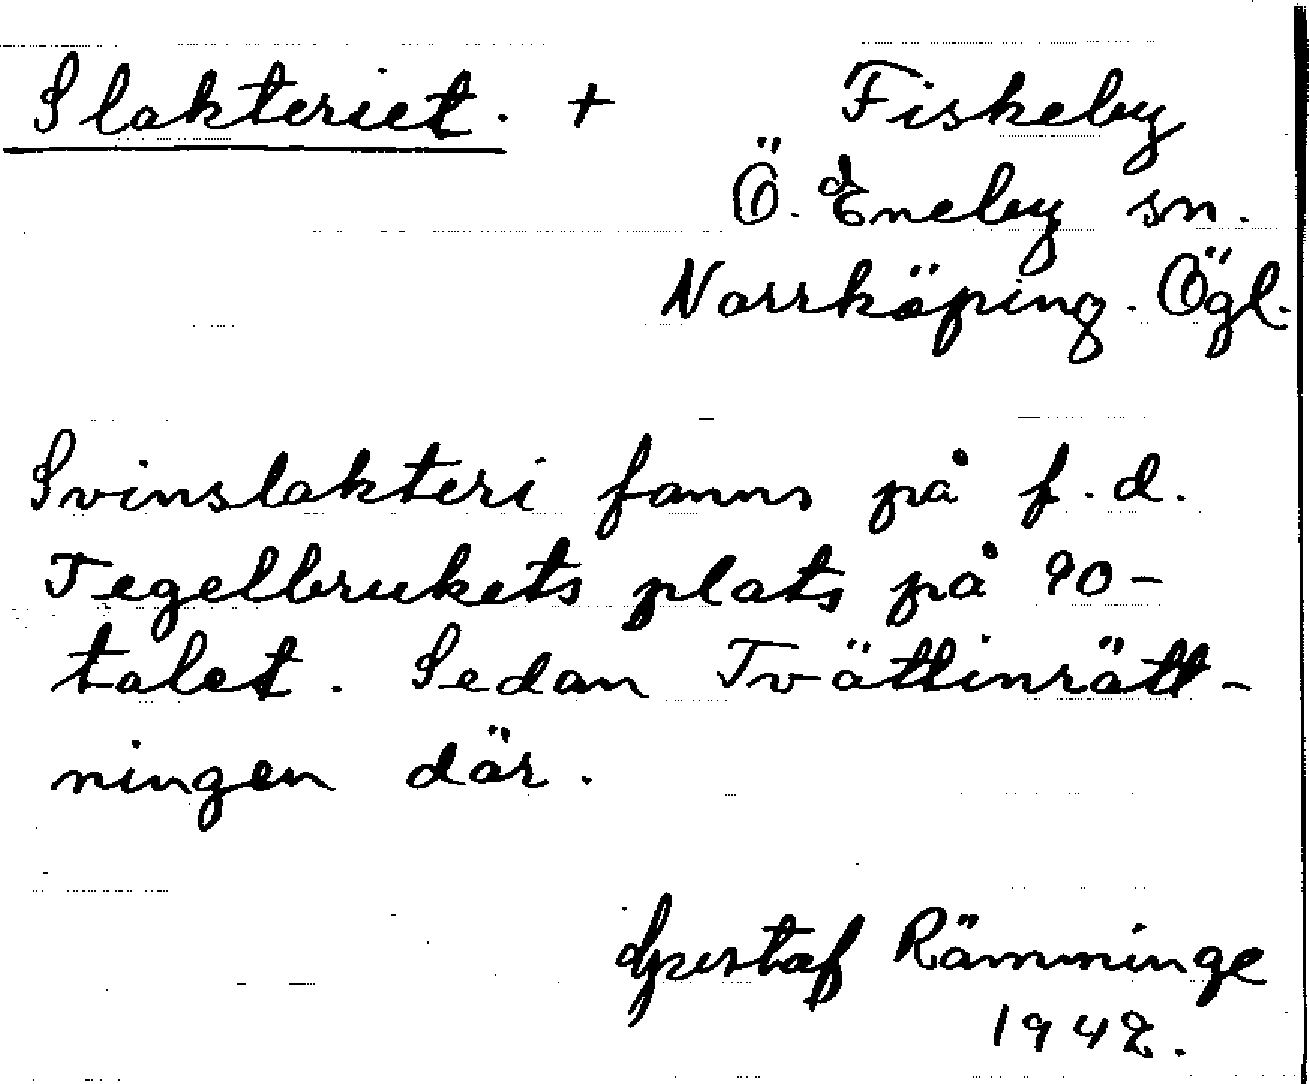 Slakteriet. + Fiskeby
Ö. Eneby sn.
Norrköping. Ögl.
Svinslakteri fanns på f.d.
Tegelbrukets plats på 90-
talet. Sedan Tvättinrätt-
ningen där.
Gustaf Rämminge
1942.